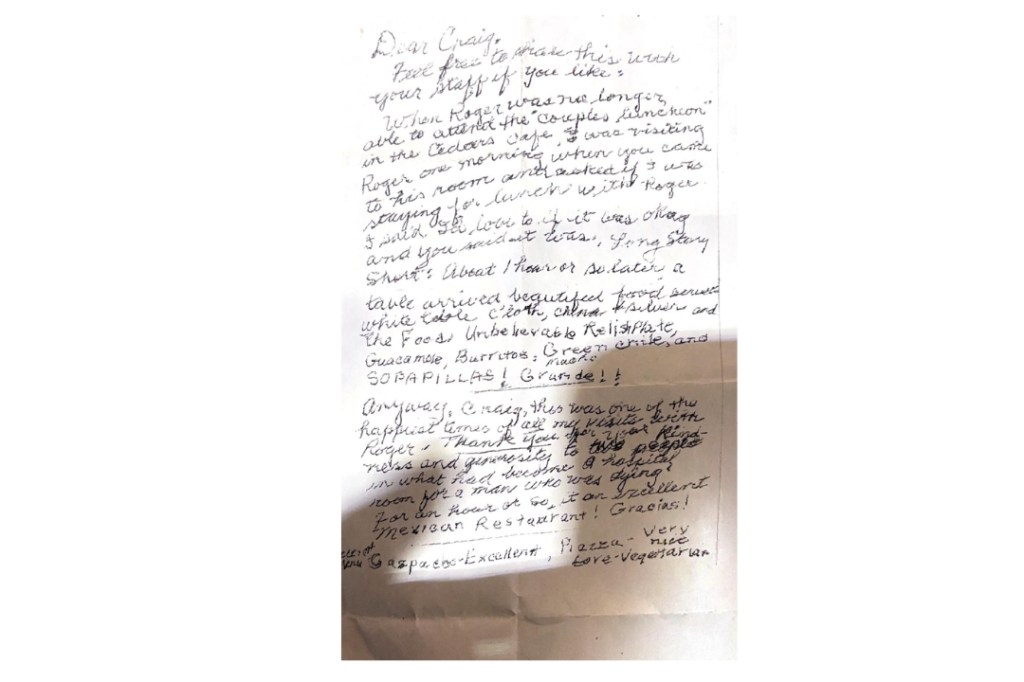 Dear Craig,
Feel free to share this with
your staff if you like:
When Roger was no longer
able to attend the "couples luncheon"
in the Cedars Cafe, I was visiting
Roger one morning when you came
to his room and asked if I was
staying for lunch with Roger.
I said I'd love to if it was okay
and you said it was. Long Story
Short: About 1 hour or so later a
table arrived beautiful food
white table cloth, china & silver and
the Food. Unbelievable Relish Plate,
Guacamole, Burritos, Green chile, and
SOPAPILLAS! Grande!!
Anyway, Craig, this was one of the
happiest times of all my visits with
Roger. Thank you for your kind-
ness and generosity to two people
in what had become a hospital
room for a man who was dying.
For an hour or so, it an excellent
Mexican Restaurant! Gracias!
Gazpacho-Excellent, Piazza- Very
nice
Love-Vegetarian